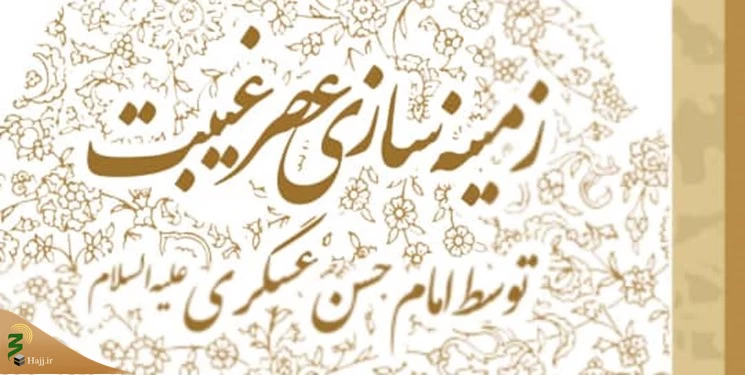 زمینه سازی عصر غیبت
توسط امام حسن عسگری علیه السلام
Hajj.ir